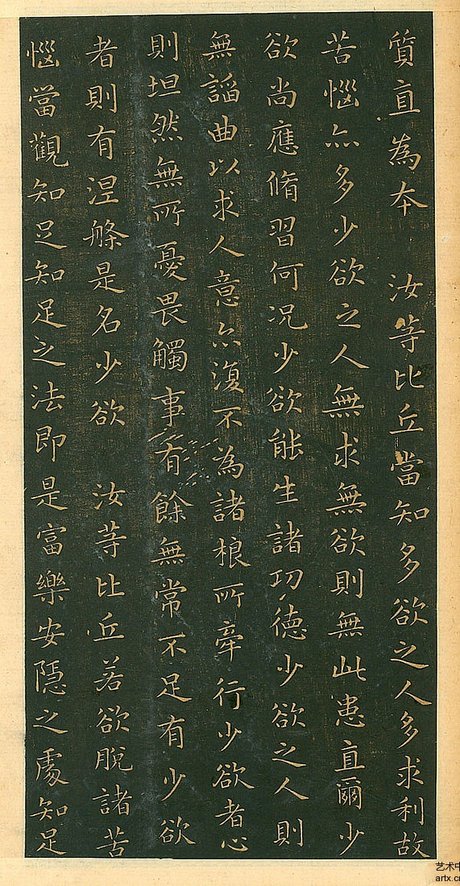 質直為本　汝等比丘當知多欲之人多求利故
苦惱亦多少欲之人無求無欲則無此患直爾少
欲尚應脩習何況少欲能生諸功德少欲之人則
無諂曲以求人意亦復不為諸根所牽行少欲者心
則坦然無所憂畏觸事有餘無常不足有少欲
者則有涅槃是名少欲　汝等比丘若欲脫諸苦
惱當觀知足知足之法即是富樂安隱之處知足
艺术中
artx.c